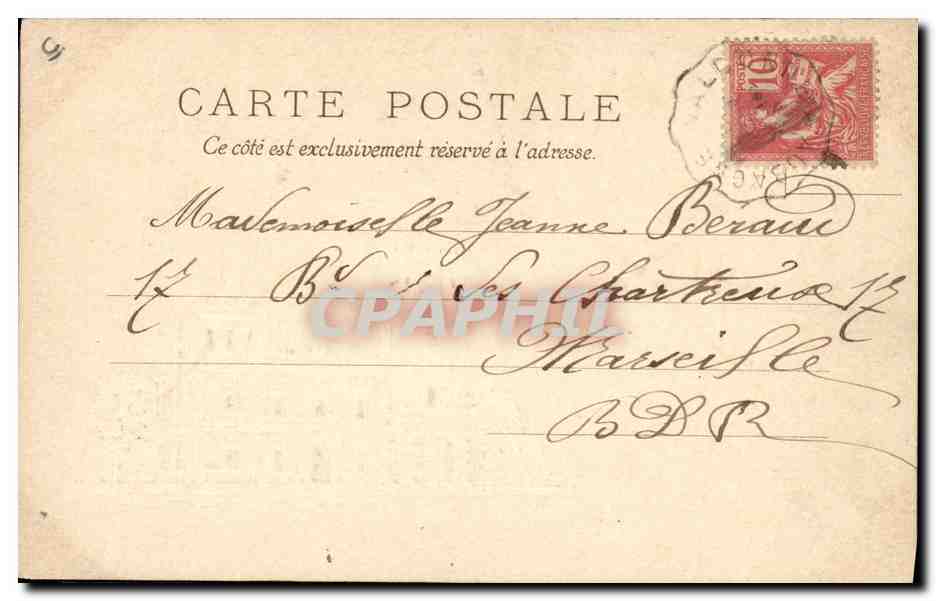 CARTE POSTALE
Ce côté est exclusivement réservé à l'adresse.
POSTES
10
REPUBLIQUE FRANÇAISE
Mademoiselle Jeanne Beraud
17 Bd des Chartreux 17
Marseille
B D R
CPAPHIL